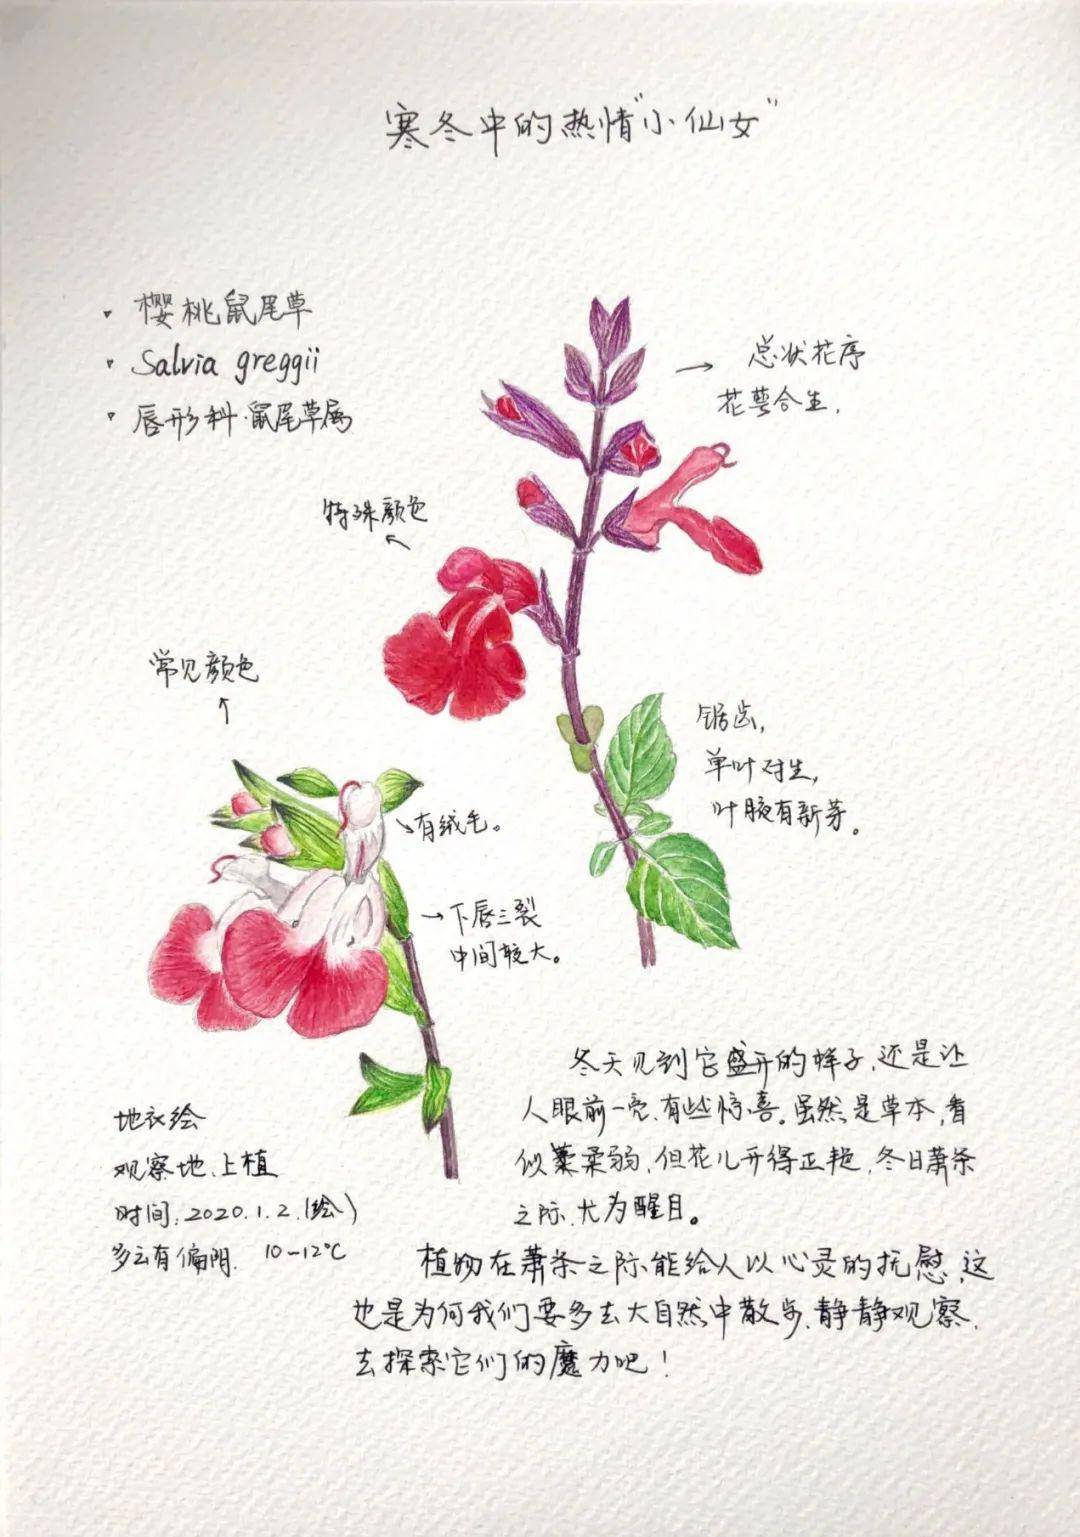 寒冬中的热情"小仙女"
· 樱桃鼠尾草
· Salvia greggii
· 唇形科·鼠尾草属
→ 总状花序
花萼合生.
特殊颜色
常见颜色
锯齿,
单叶对生,
叶腋有新芽。
有绒毛。
→下唇三裂
中间较大。
冬天见到它盛开的样子,还是让
人眼前一亮、有些惊喜。虽然是草本,看
似柔弱,但花儿开得正艳,冬日萧条
之际,尤为醒目。
植物在萧条之际能给人以心灵的抚慰,这
也是为何我们要多去大自然中散步、静静观察,
去探索它们的魔力吧!
地衣绘
观察地:上植
时间:2020.1.2.(绘)
多云有偏阴. 10-12℃